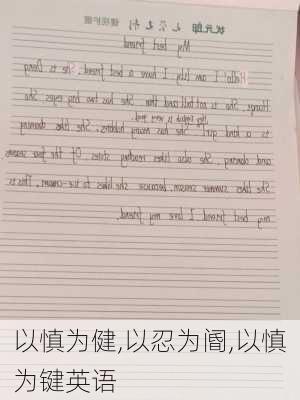 状元郎
My best friend
Hello! I am Lily. I have a best friend. She is Dong
Hongs. She is not tall and thin. She has two big eyes. She
Her favourite is
is a kind girl. She has many hobbies. She likes dancing
and dancing. She also likes reading stories. Of the four season
She likes summer season, because she likes to swimm. This is
my best friend. I love my friend.
以慎为健,以忍为阍,以慎
为键英语